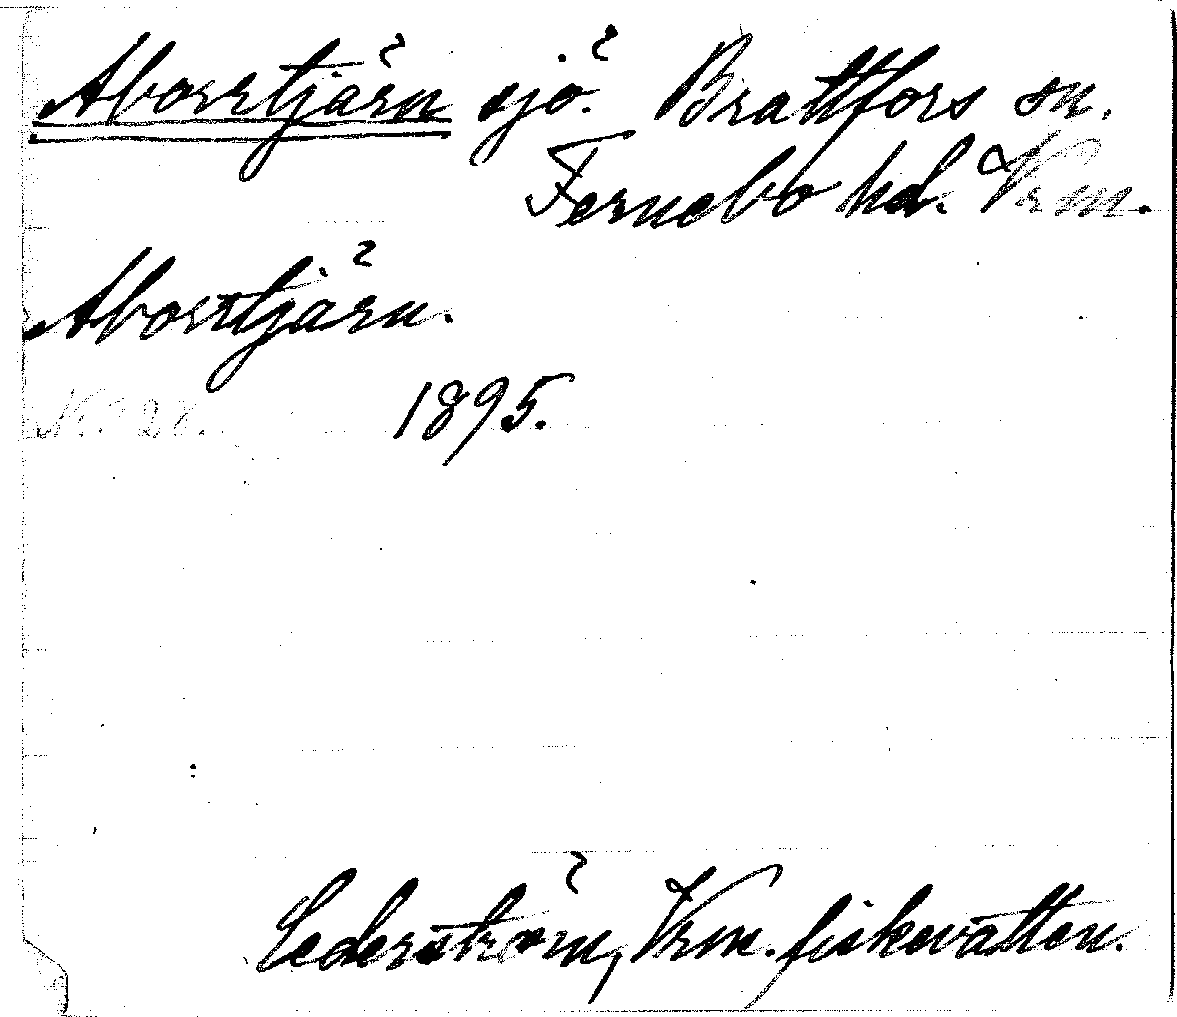 Aborrtjärn sjö. Brattfors sn.
Fernebo hd. Vrm.
Aborrtjärn.
N:o 28. 1895.
Cederström, Vrm. fiskevatten.